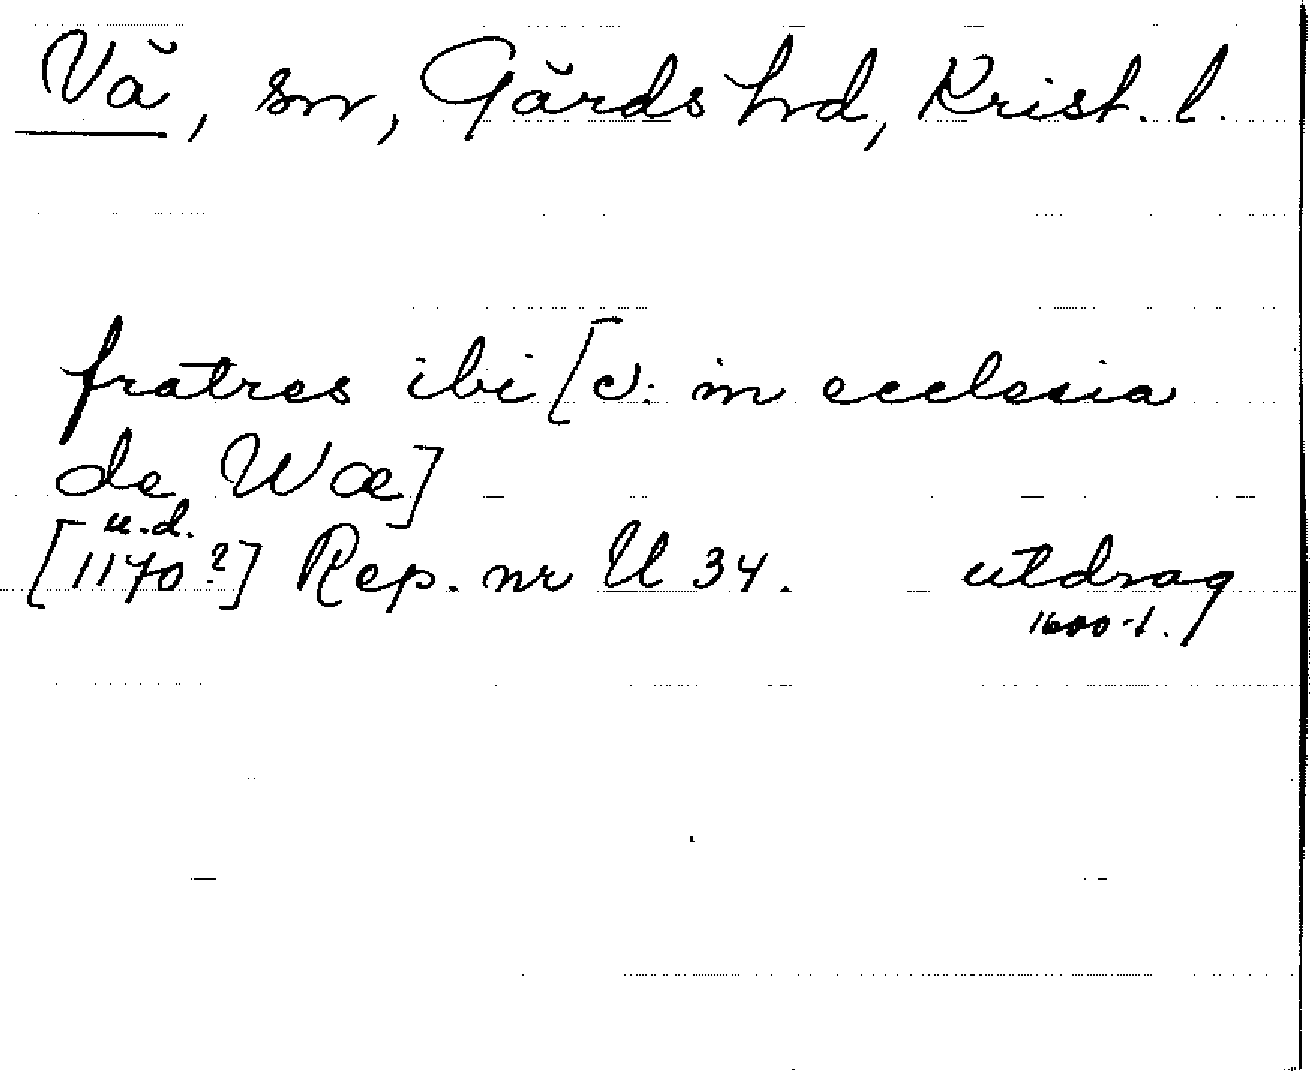 Vă, sn, Gărds hd, Krist. l.
fratres ibi [ɔ: in ecclesia
de Wæ]
u.d.
[1170?] Rep. nr U 34. utdrag
1600-t.